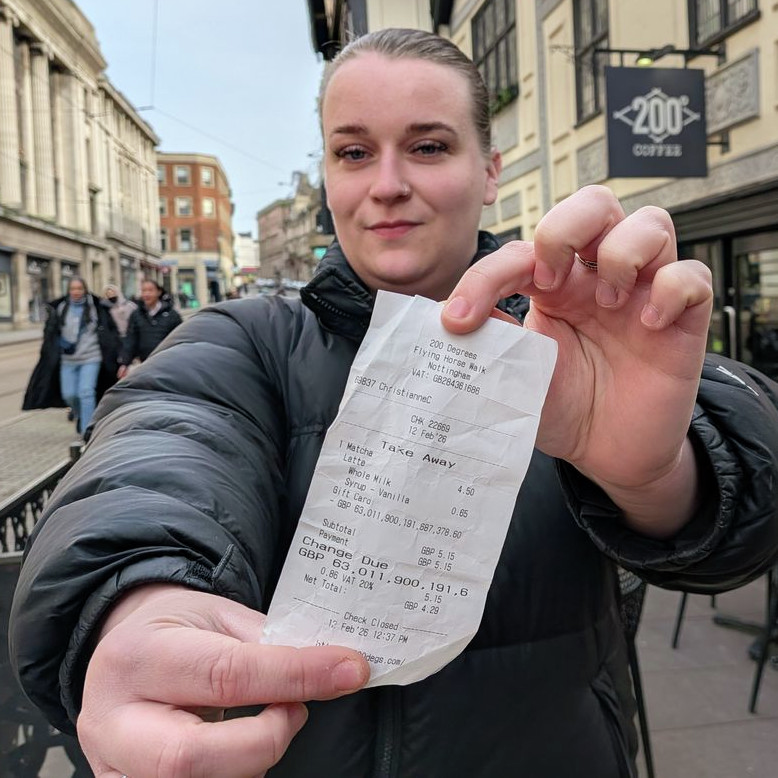 200°
COFFEE
200 Degrees
Flying Horse Walk
Nottingham
VAT: GB284361686
69837 ChristianneC
CHK 22669
12 Feb'26
Take Away
1 Matcha 4.50
Latte
Whole Milk
Syrup - Vanilla 0.65
Gift Card
GBP 63,011,900,191,887,378.60
Subtotal GBP 5.15
Payment GBP 5.15
Change Due
GBP 63,011,900,191.6
0.86 VAT 20% 5.15
Net Total: GBP 4.29
Check Closed
12 Feb'26 12:37 PM
degs.com/